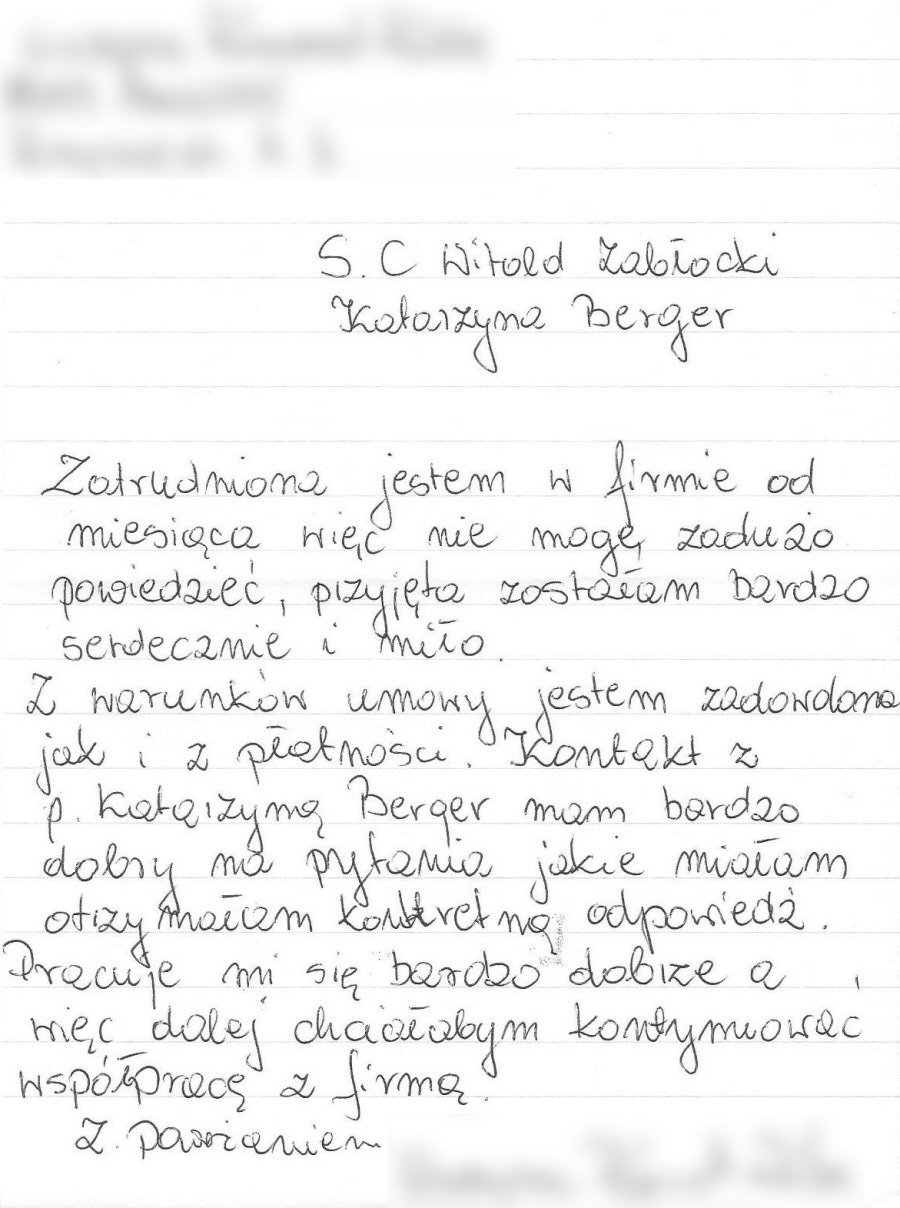 S.C Witold Zabłocki
Katarzyna Berger
Zatrudniona jestem w firmie od
miesiąca więc nie mogę zadużo
powiedzieć, przyjęta zostałam bardzo
serdecznie i miło.
Z warunków umowy jestem zadowolona
jak i z płatności. Kontakt z
p. Katarzyną Berger mam bardzo
dobry na pytania jakie miałam
otrzymałam konkretną odpowiedź.
Pracuje mi się bardzo dobrze a ,
więc dalej chciałabym kontynuować
współpracę z firmą.
Z poważaniem